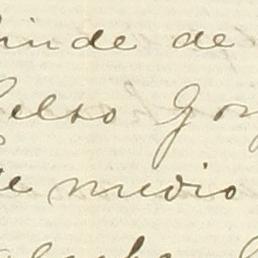 inde de
Celso Gon
te medio